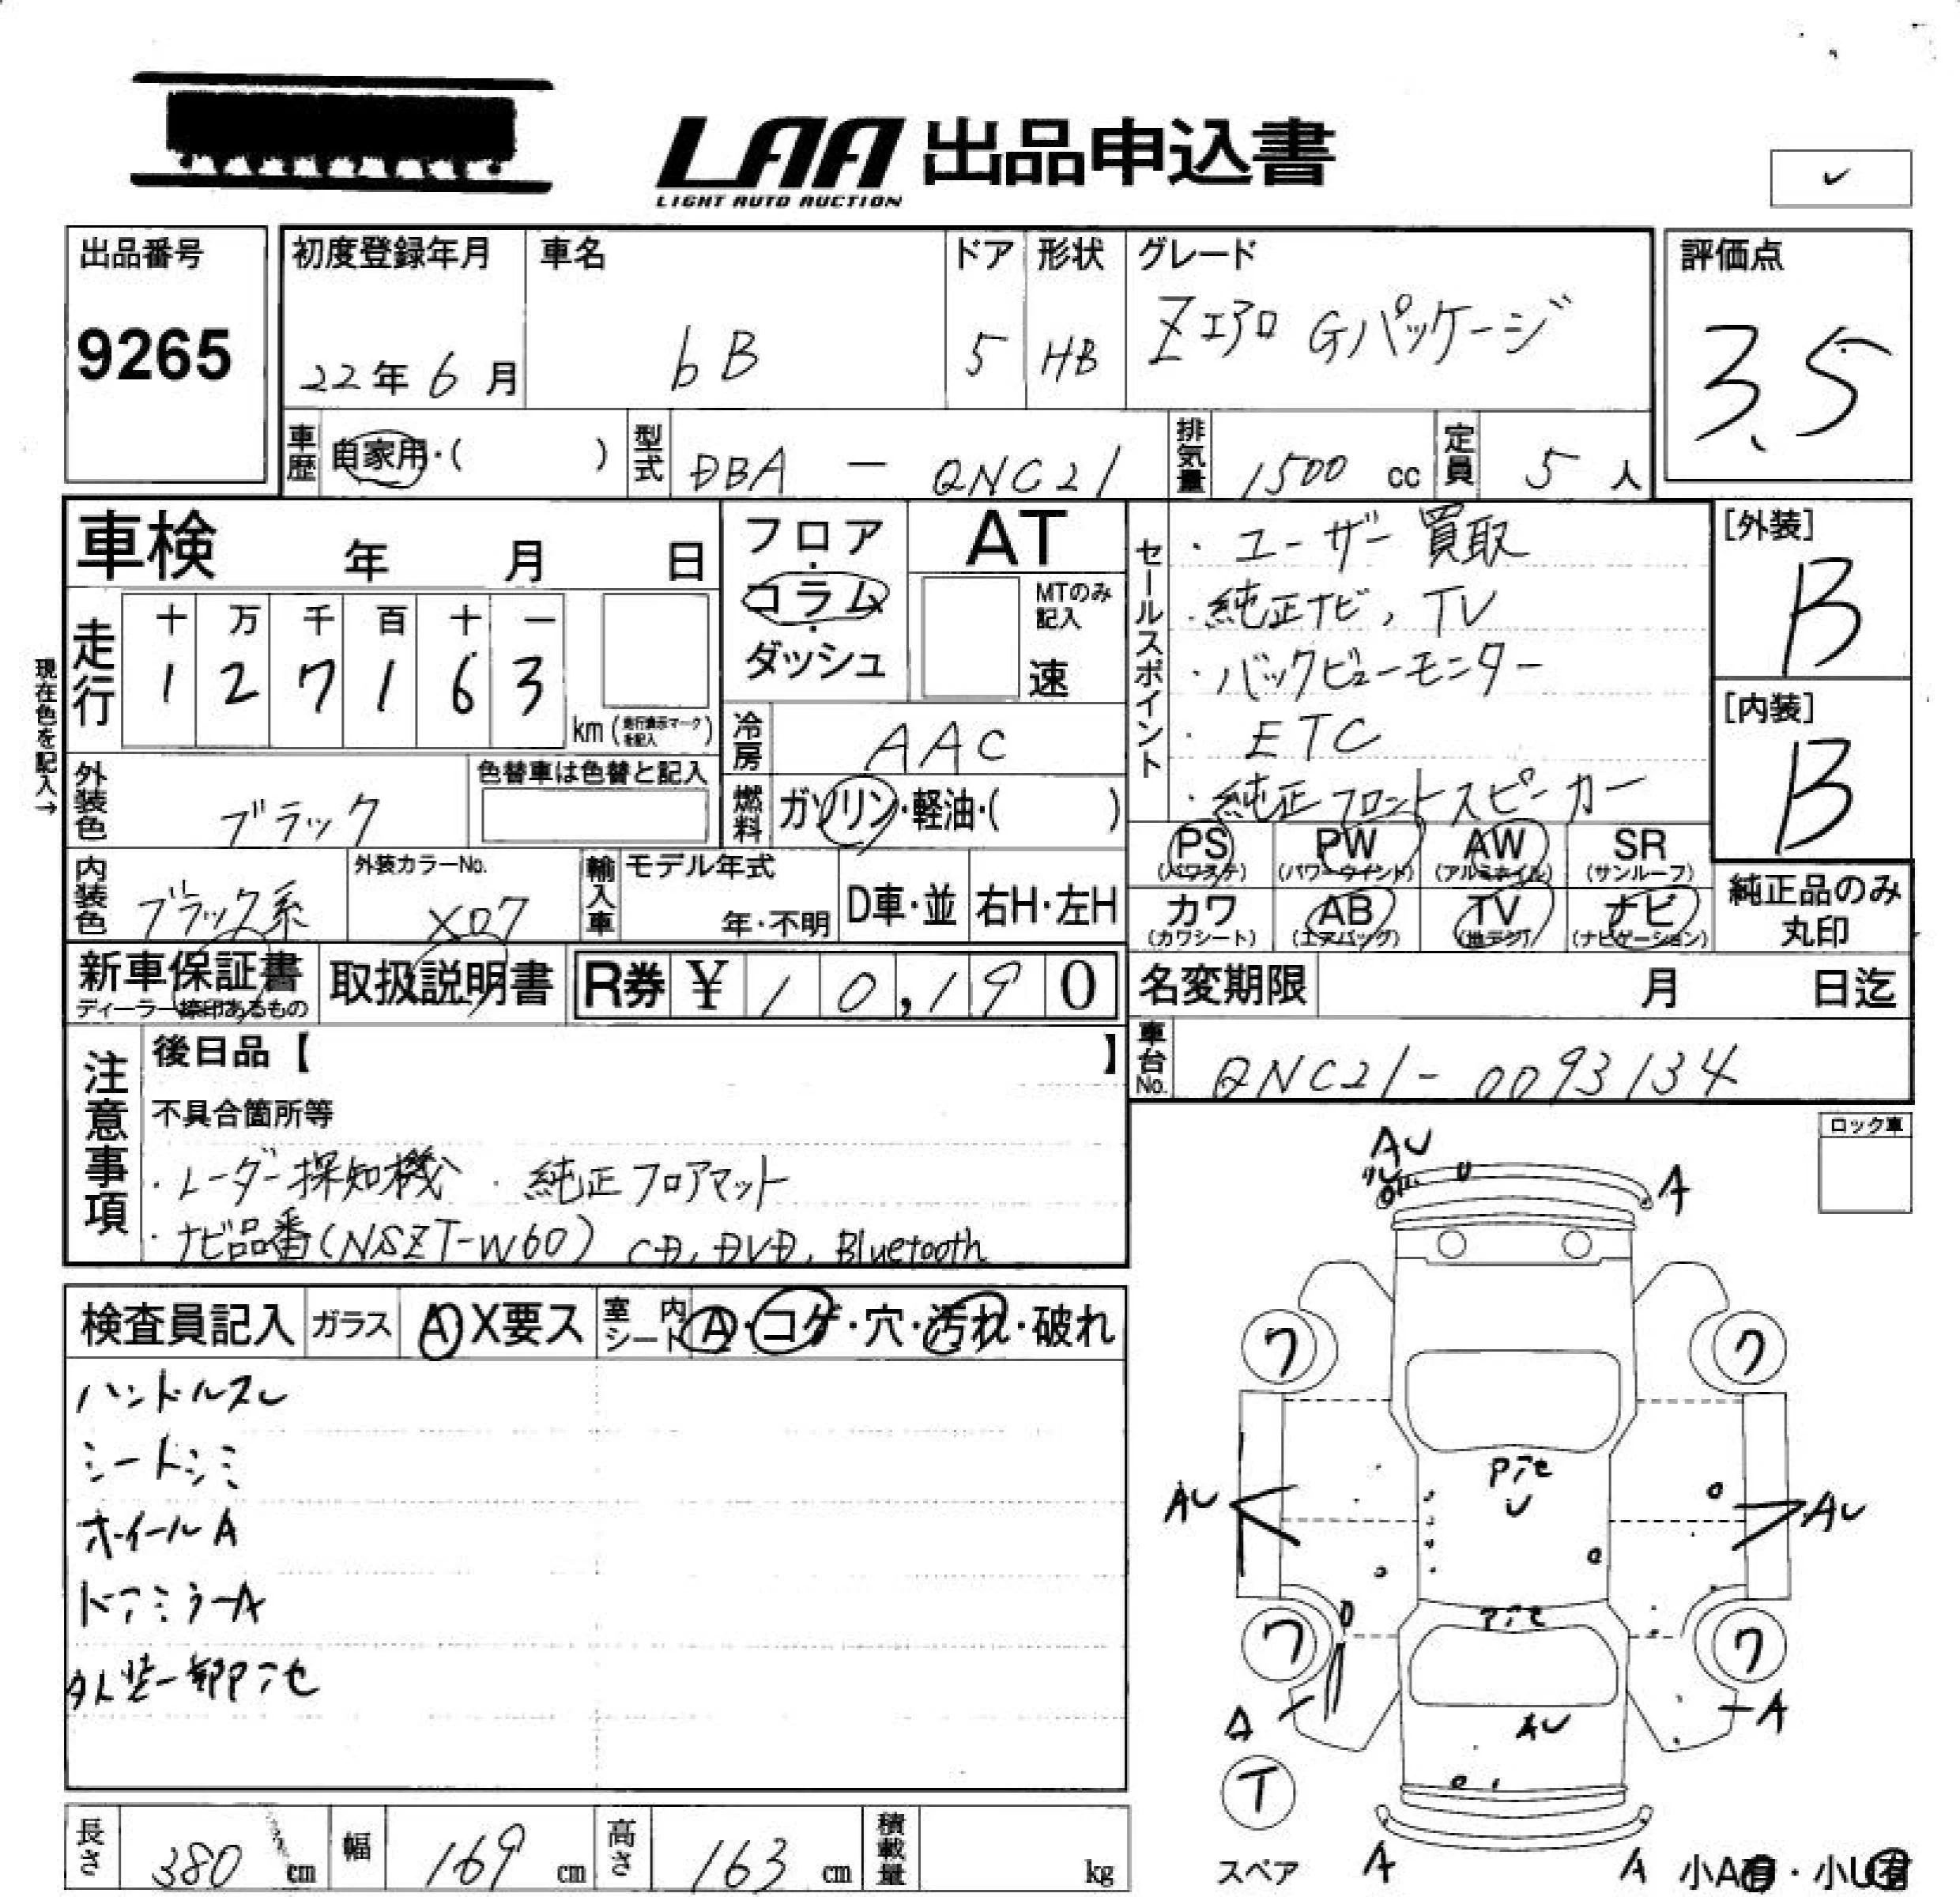 LAA 出品申込書
LIGHT AUTO AUCTION
出品番号 初度登録年月 車名 ドア 形状 グレード 評価点
9265 22年6月 bB 5 HB Zエアロ Gパッケージ 3.5
車歴 自家用・( ) 型式 DBA － QNC21 排気量 1500 cc 定員 5 人
車検 年 月 日
フロア・コラム・ダッシュ
AT
MTのみ記入
速
セールスポイント
・ユーザー買取
・純正ナビ, TV
・バックビューモニター
・ETC
・純正フロントスピーカー
[外装]
B
[内装]
B
現在色を記入→
走行 十 万 千 百 十 一
1 2 7 1 6 3 km (走行表示マークを記入)
冷房 AAC
外装色 ブラック 色替車は色替と記入
燃料 ガソリン・軽油・( )
PS (パワステ) PW (パワーウインド) AW (アルミホイル) SR (サンルーフ)
カワ (カワシート) AB (エアバッグ) TV (地デジ) ナビ (ナビゲーション)
純正品のみ丸印
内装色 ブラック系 外装カラーNo. X07 輸入車 モデル年式 年・不明 D車・並 右H・左H
新車保証書 ディーラー捺印あるもの 取扱説明書 R券 ¥ 10,190
名変期限 月 日迄
車台No. QNC21-0093134
注意事項
後日品【 】
不具合箇所等
・レーダー探知機 ・純正フロアマット
・ナビ品番(NSZT-W60) CD, DVD, Bluetooth
ロック車
検査員記入 ガラス A X要ス 室内シート A・コゲ・穴・汚れ・破れ
ハンドルスレ
シートシミ
ホイールA
ドアミラーA
AU
A
ワ ワ
AU AU
U
ワ ワ
A A
AU
T
スペア A A 小A有・小U有
長さ 380 cm 幅 169 cm 高さ 163 cm 積載量 kg